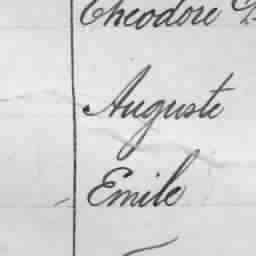 Theodore
Auguste
Emile